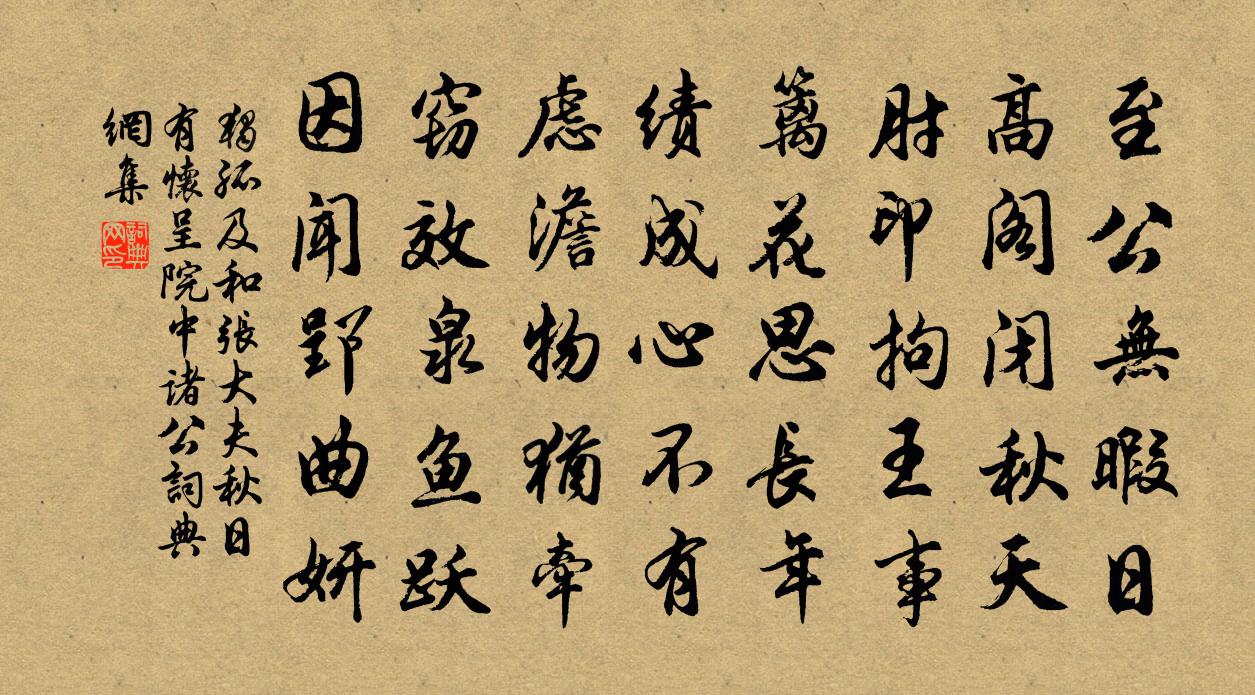 至公無暇日
高閣閉秋天
肘印拘王事
篱花思長年
績成心不有
慮澹物猶牽
窃效泉鱼跃
因聞郢曲妍
獨孤及和張大夫秋日
有懷呈院中諸公詞典
網集
詞典
网印